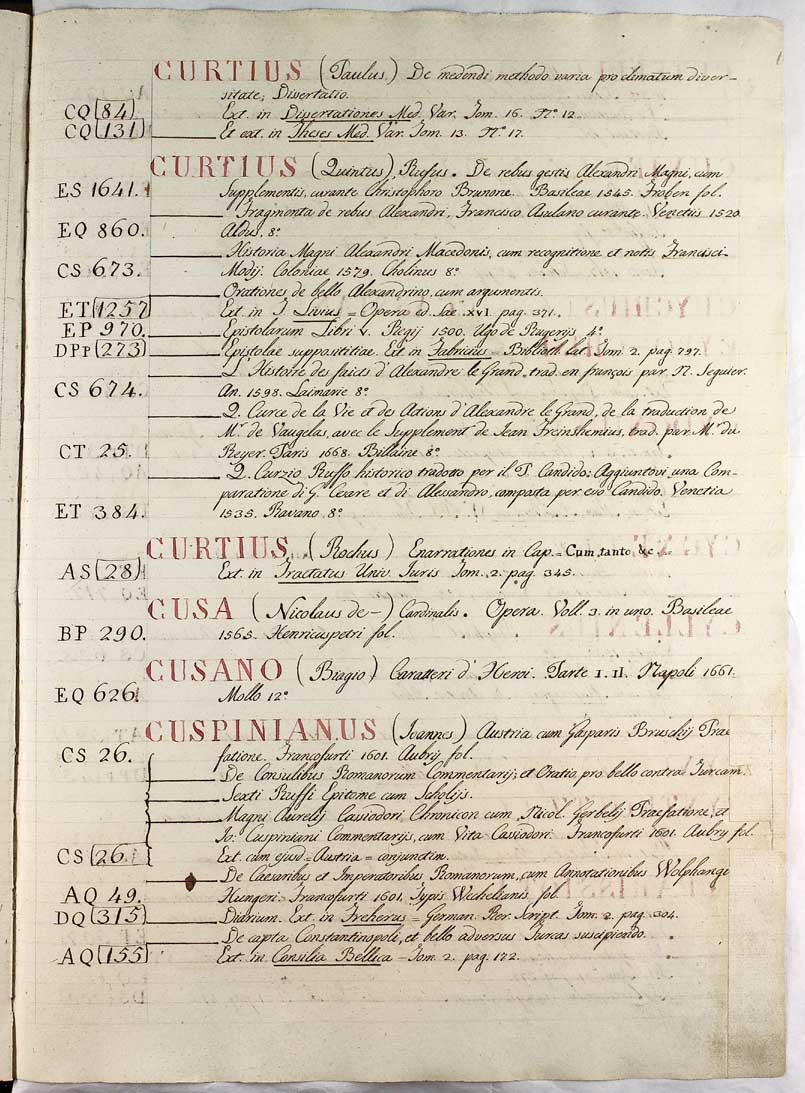 CURTIUS (Paulus) De medendi methodo varia pro climatum diver-
sitate; Dissertatio.
CQ 84 Ext. in Dissertationes Med. Var. Tom. 16. N.o 12.
CQ 131 Et ext. in Theses Med. Var. Tom. 13. N.o 17.
CURTIUS (Quintus) Rufus. De rebus gestis Alexandri Magni, cum
ES 1641. Supplementis, curante Christophoro Brunone. Basileae 1545. Froben fol.
Fragmenta de rebus Alexandri, Francisco Asulano curante. Venetiis 1520.
EQ 860. Aldus. 8.o
Historia Magni Alexandri Macedonis, cum recognitione et notis Francisci
CS 673. Modij. Coloniae 1579. Cholinus 8.o
Orationes de bello Alexandrino cum argumentis.
ET 1257 Ext. in T. Livius = Opera ed. Sae. XVI. pag. 371.
EP 970. Epistolarum Libri V. Regij 1500. Ugo de Rugerijs 4.o
DPp 273 Epistolae supposititiae. Ext. in Fabricius = Biblioth. lat. Tom. 2. pag. 797.
L'Histoire des faicts d'Alexandre le Grand, trad. en françois par N. Seguier.
CS 674. An. 1598. Laimarie 8.o
Q. Curce de la Vie et des Actions d'Alexandre le Grand, de la traduction de
M.r de Vaugelas, avec le Supplement de Jean Freinshemius, trad. par M. du
CT 25. Reyer. Paris 1668. Billaine 8.o
Q. Curzio Ruffo historico tradotto per il P. Candido: Aggiuntovi una Com-
paratione di G. Cesare et di Alessandro, composta per esso Candido. Venetia
ET 384. 1535. Ravano. 8.o
CURTIUS, (Rochus) Enarrationes in Cap. = Cum tanto &c =
AS 28 Ext. in Tractatus Univ. Iuris Tom. 2. pag. 345.
CUSA (Nicolaus de -) Cardinalis. Opera. Voll. 3. in uno. Basileae
BP 290. 1565. Henricuspetri fol.
CUSANO (Biagio) Caratteri d'Heroi. Parte I. II. Napoli 1661.
EQ 626. Mollo 12.o
CUSPINIANUS (Ioannes) Austria cum Gasparis Bruschij Prae
CS 26. fatione. Francofurti 1601. Aubrij fol.
De Consulibus Romanorum Commentarij, et Oratio pro bello contra Turcam.
Sexti Ruffi Epitome cum Scholijs.
Magni Aurelij Cassiodori Chronicon cum Nicol. Gerbelij Praefatione, et
Io: Cuspiniani Commentarijs, cum Vita Cassiodori. Francofurti 1601. Aubry fol.
CS 26. Ext. cum ejusd = Austria = conjunctim.
De Caesaribus et Imperatoribus Romanorum, cum Annotationibus Wolphangi
AQ 49. Hungeri. Francofurti 1601. Typis Wechelianis fol.
DQ 315 Diarium. Ext. in Freherus = German. Rer. Script. Tom. 2. pag. 304.
De capta Constantinopoli, et bello adversus Turcas suscipiendo.
AQ 155 Ext. in Consilia Bellica - Tom. 2. pag. 172.